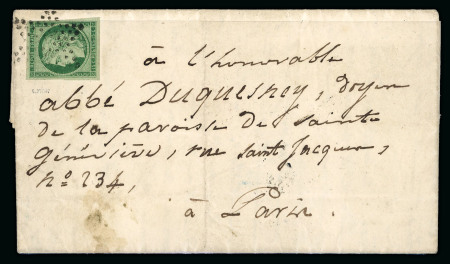 à l'honorable
abbé Duquesney, doyen
de la paroisse de sainte
généviève, rue saint Jacques,
n.º 234,
à Paris.